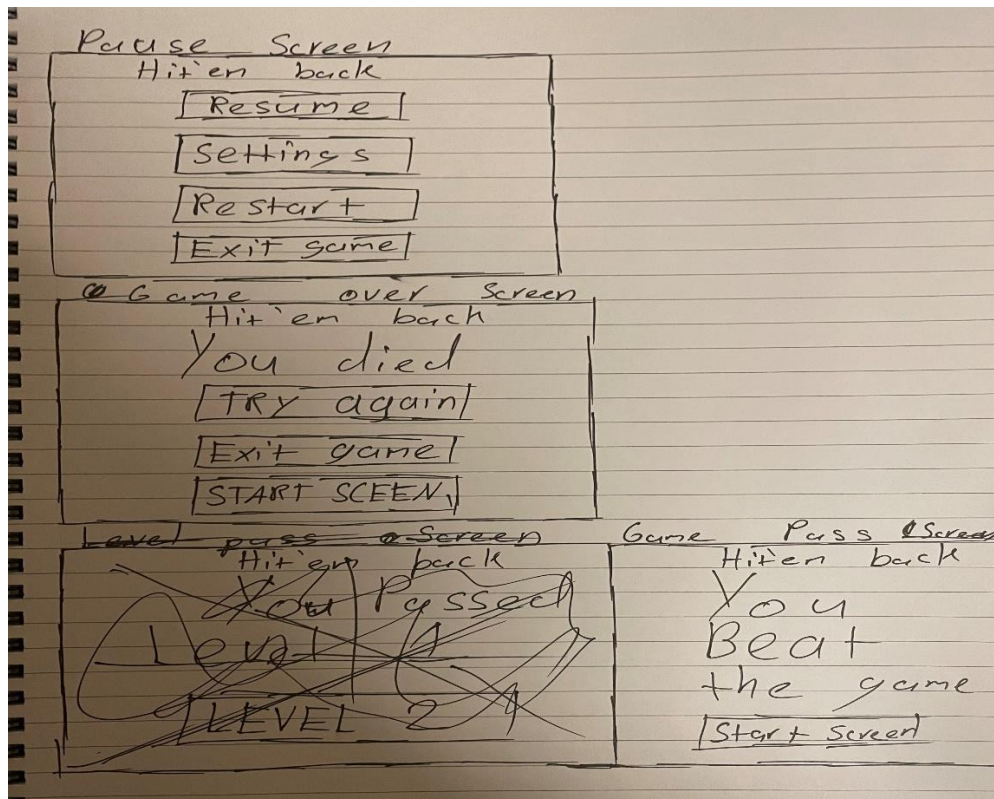 Pause Screen
Hit'en back
Resume
Settings
Restart
Exit game
Game over Screen
Hit'em back
You died
TRY again
Exit game
START SCEEN
Level pass Screen
Hit'em back
You Passed
Level 1
LEVEL 2
Game Pass Screen
Hit'en back
You
Beat
the game
Start Screen